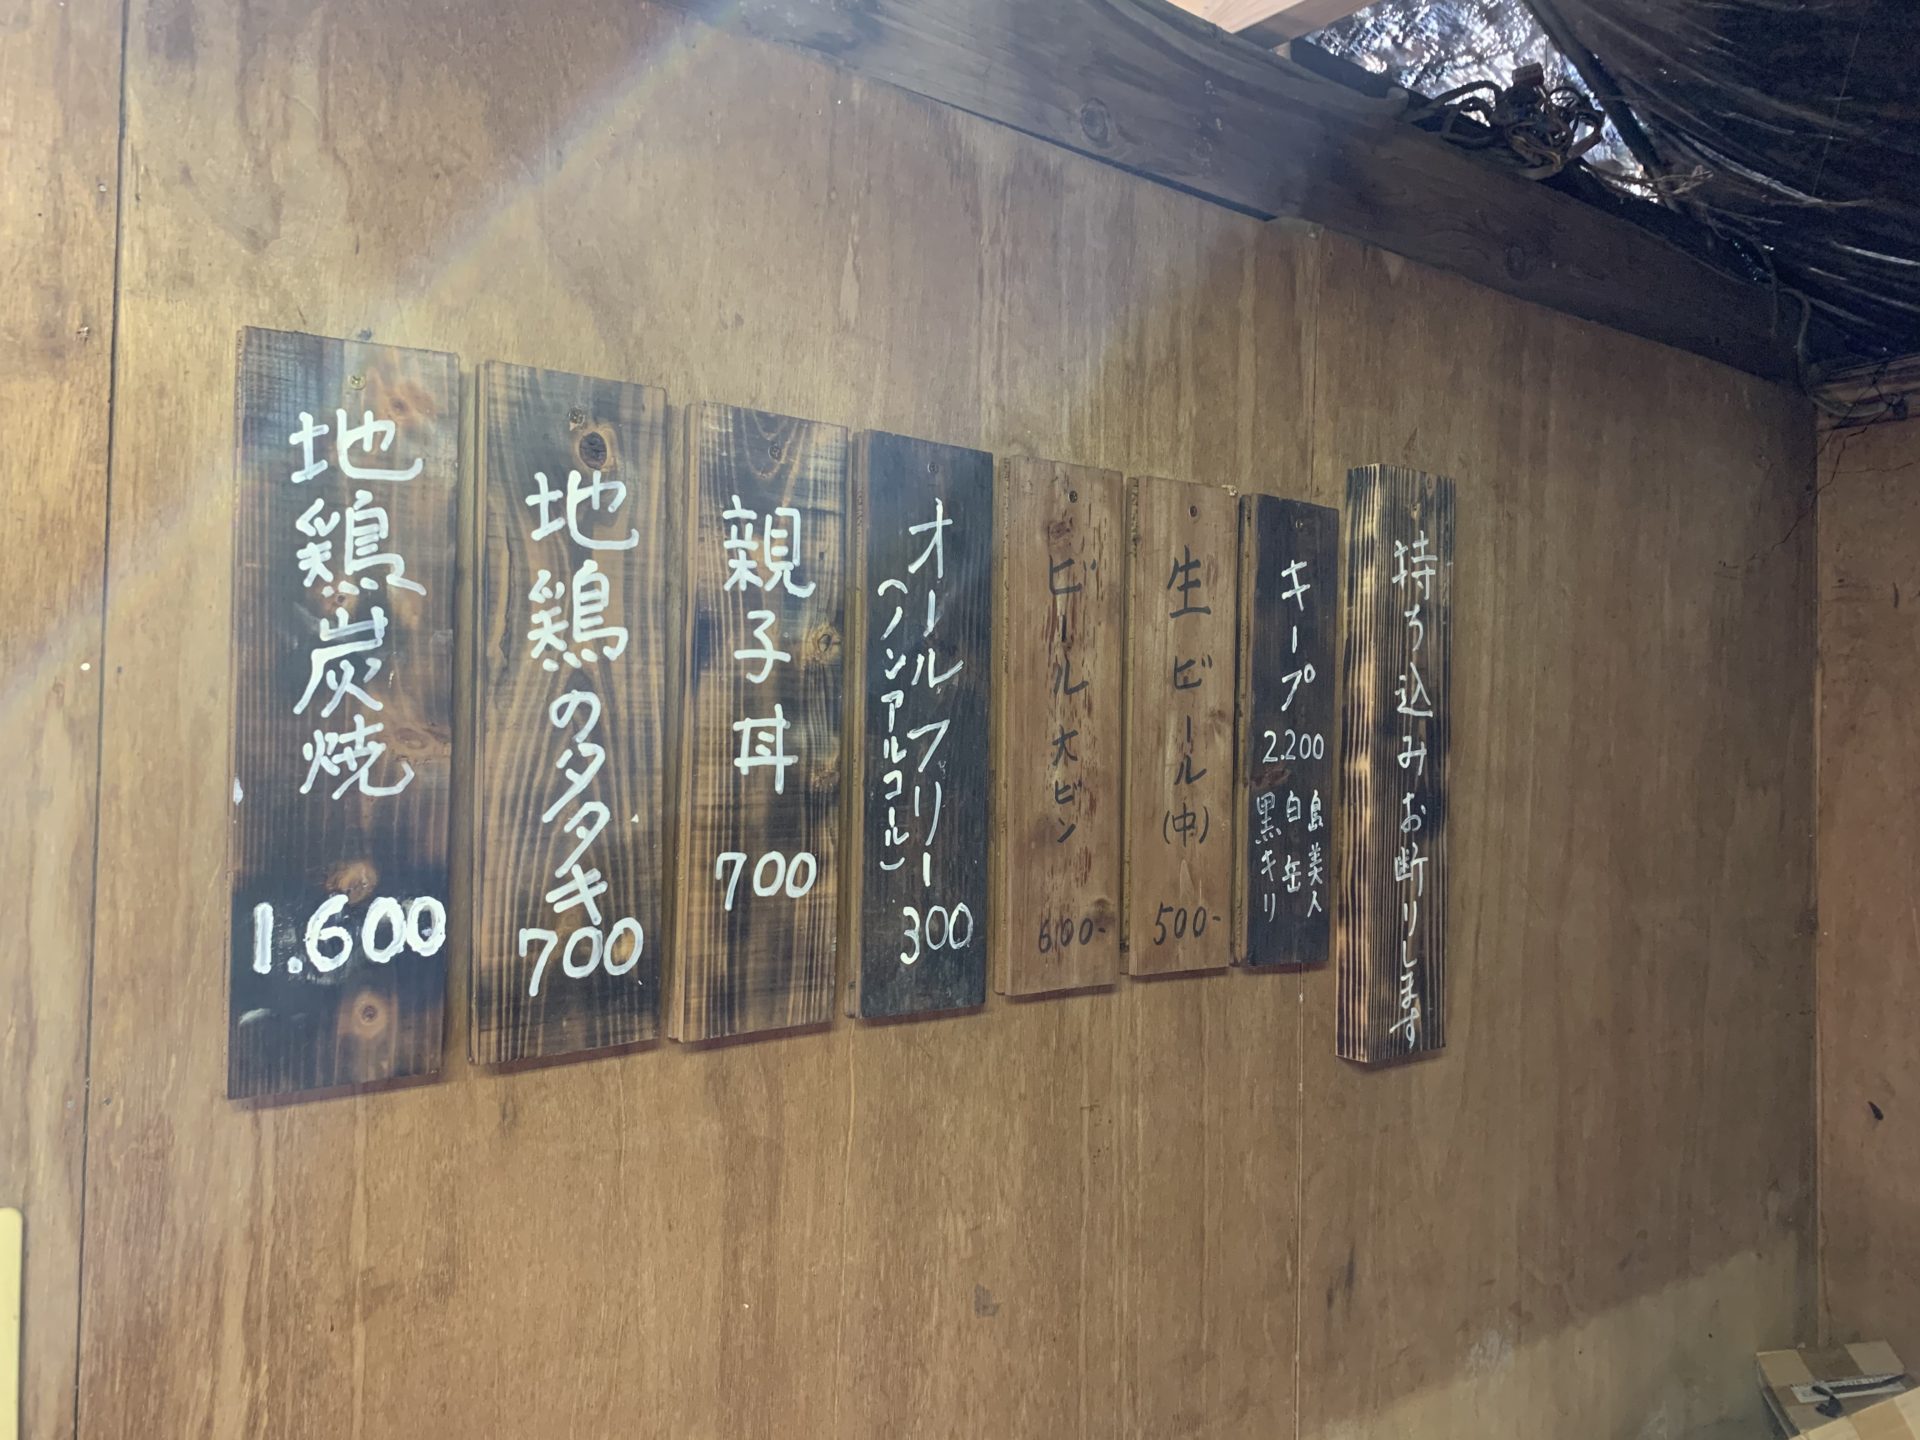 地鶏炭焼
1.600
地鶏のタタキ
700
親子丼
700
オールフリー
(ノンアルコール)
300
ビール大ビン
600-
生ビール(中)
500-
キープ
2.200
島美人
白岳
黒キリ
持ち込みお断りします